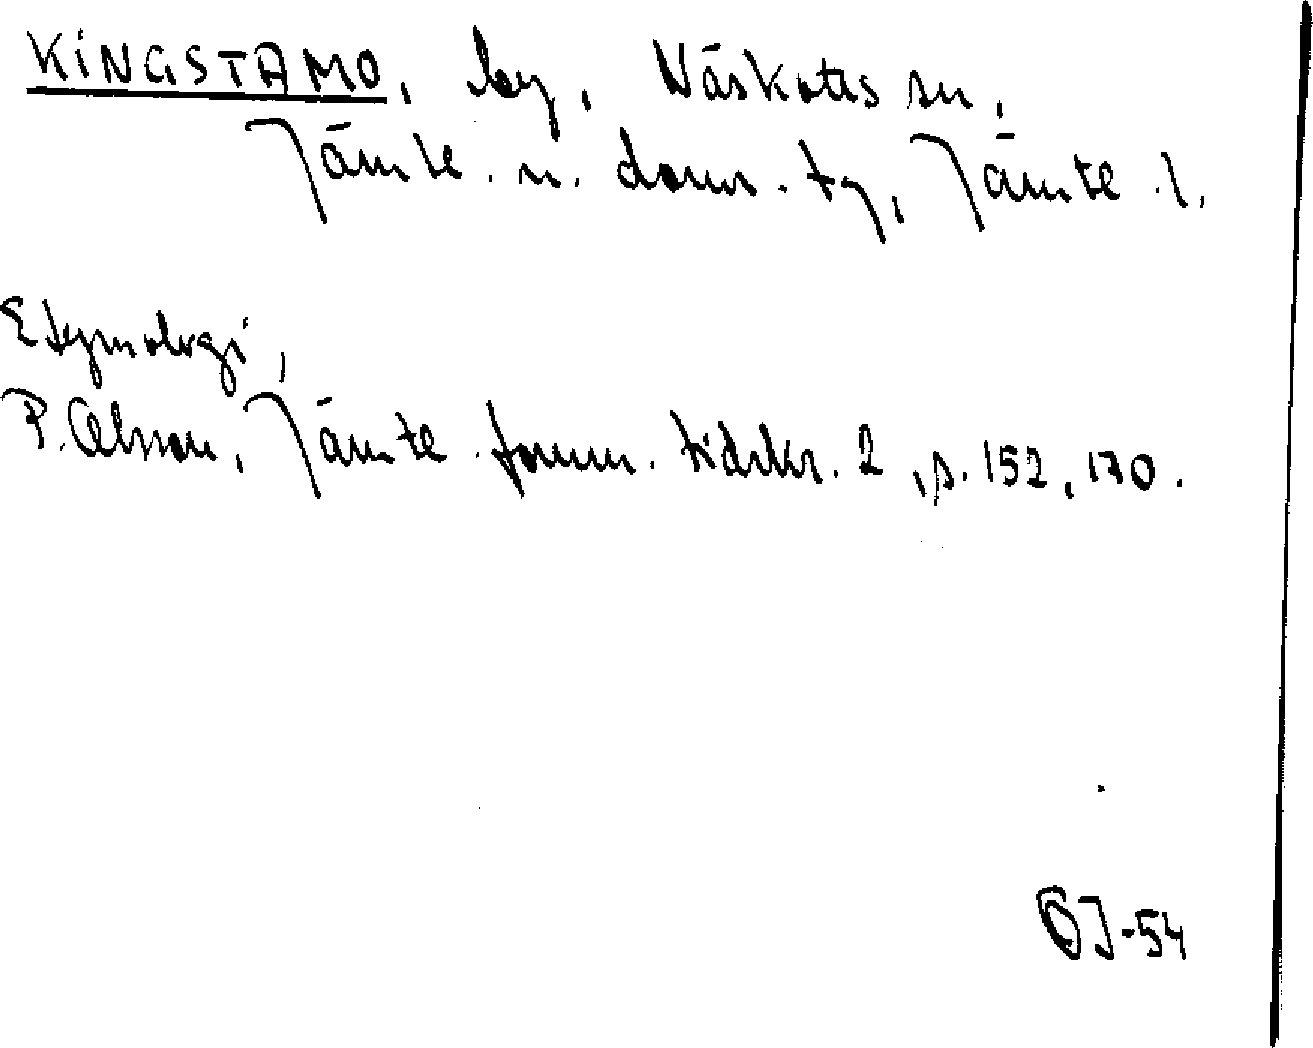 KINGSTAMO, by, Näskotts sn,
Jämtl. n. doms. tg, Jämtl. l.
Etymologi,
P. Olsson, Jämtl. fornm. tidskr. 2, s. 152, 170.
ÖJ-54